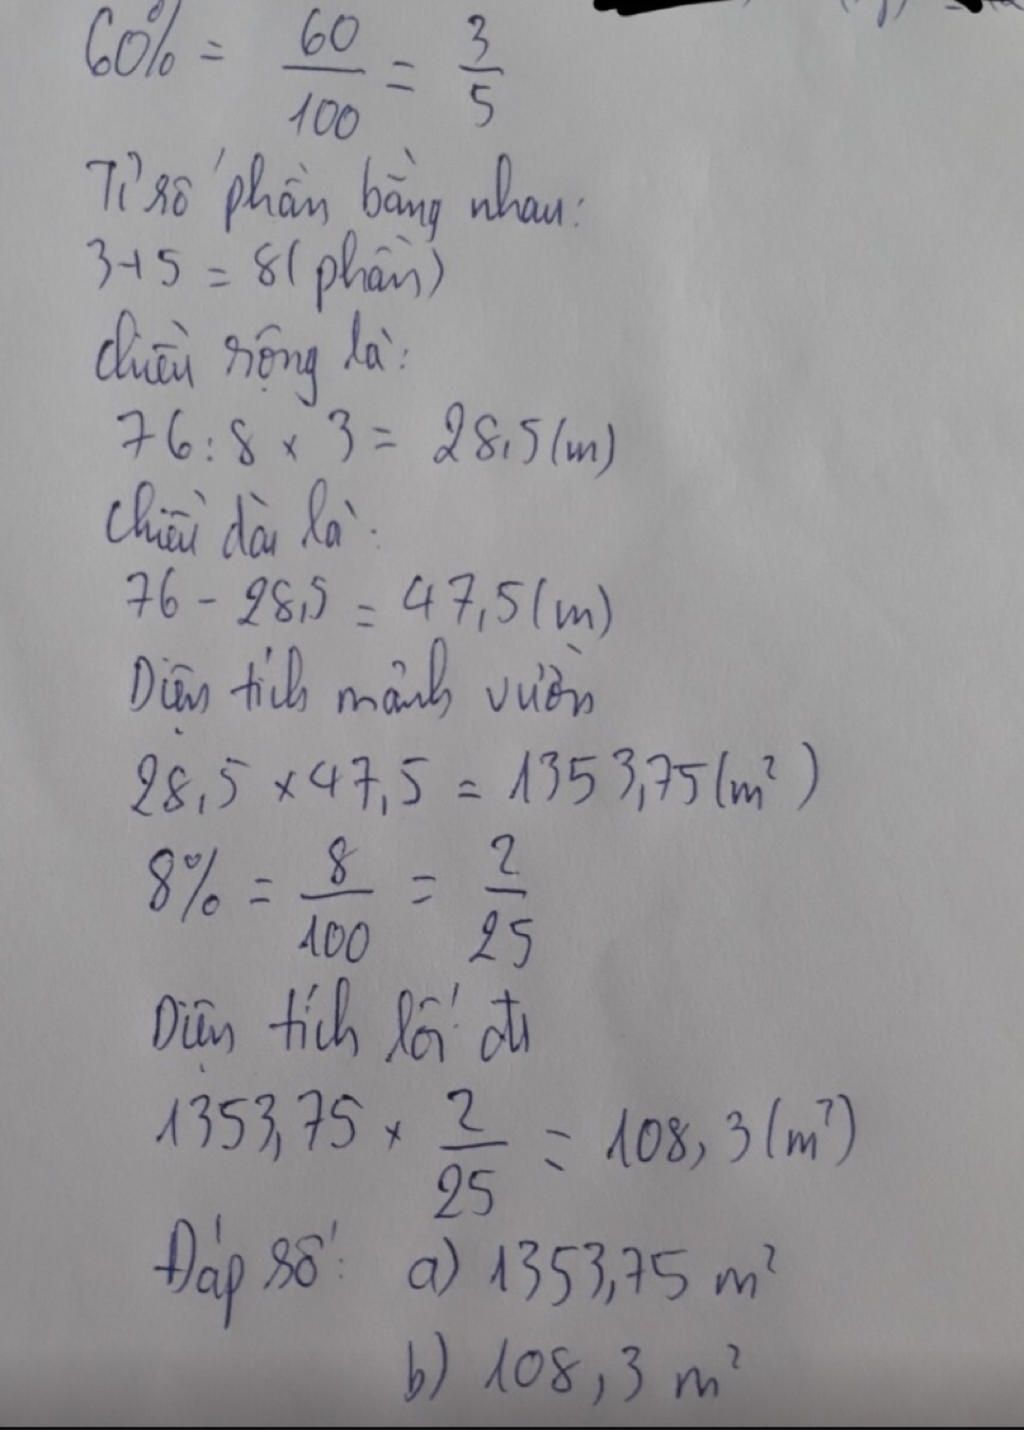 60% = 60/100 = 3/5
Tỉ số phần bằng nhau:
3+5 = 8 (phần)
Chiều rộng là:
76 : 8 × 3 = 28,5 (m)
Chiều dài là:
76 - 28,5 = 47,5 (m)
Diện tích mảnh vườn
28,5 × 47,5 = 1353,75 (m²)
8% = 8/100 = 2/25
Diện tích lối đi
1353,75 × 2/25 = 108,3 (m²)
Đáp số: a) 1353,75 m²
b) 108,3 m²